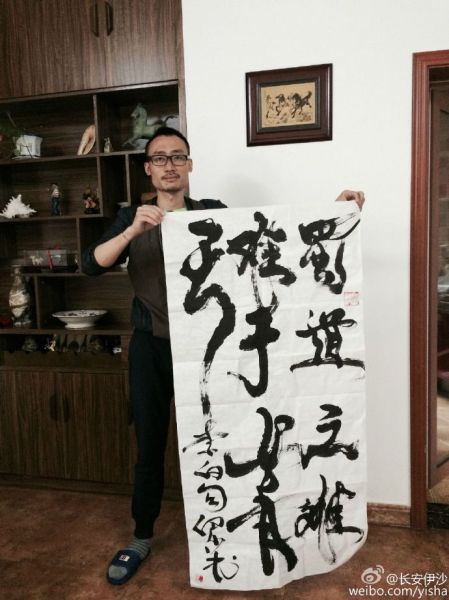 蜀道之難
难于上青
天
李白句
@长安伊沙
weibo.com/yisha